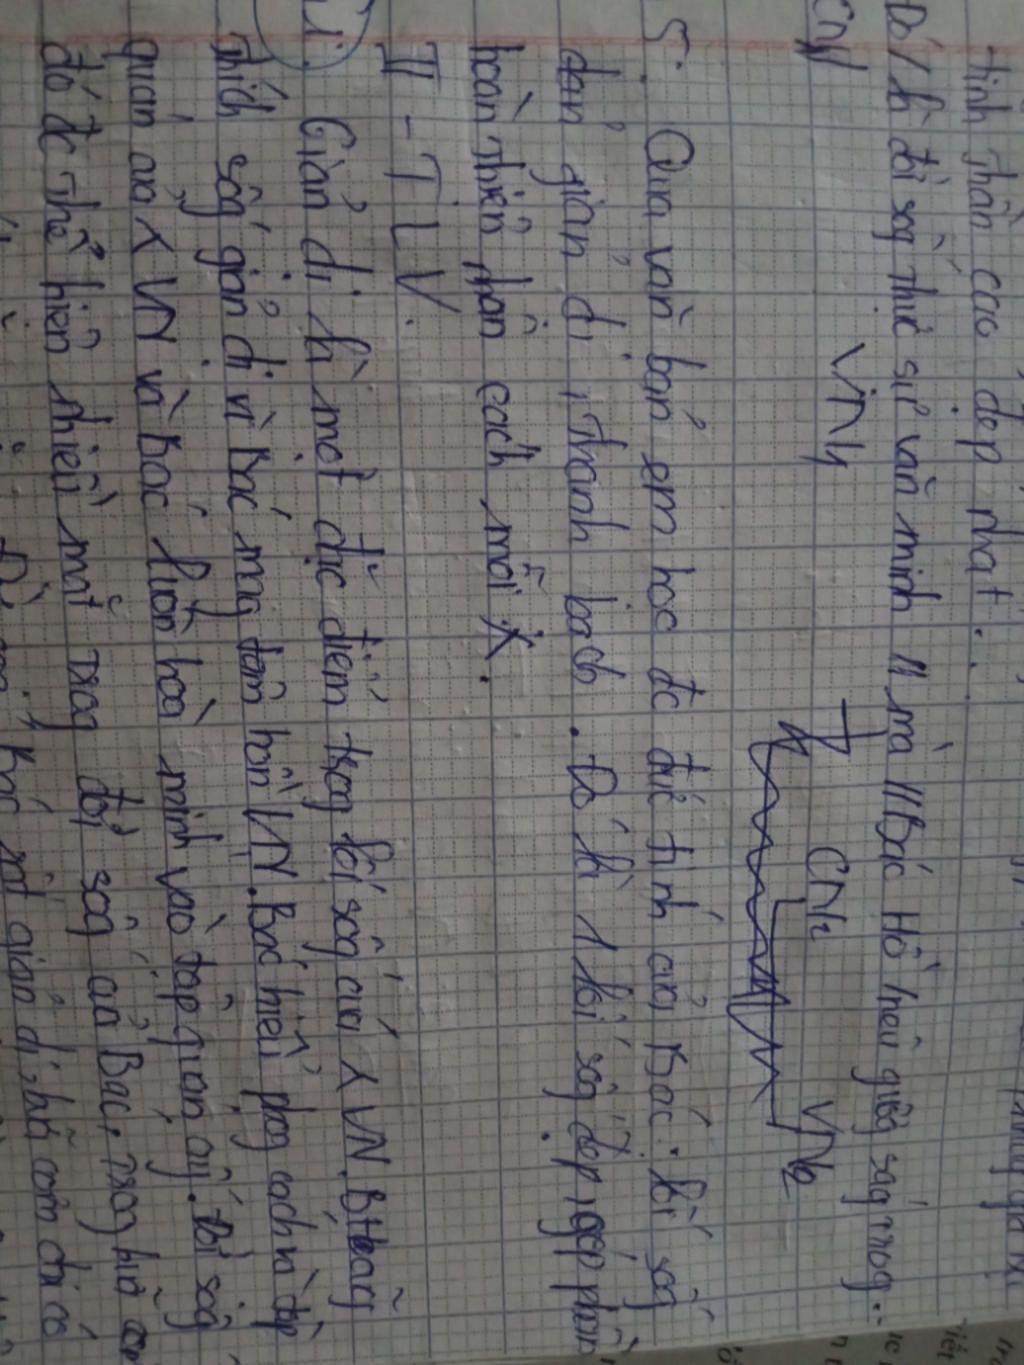 tinh thần cao đẹp nhất.
Đó / là đời sốg thực sự văn minh // mà /// Bác Hồ / nêu gươg ság trog.
CN1 VN1 CN2 VN2
5. Qua văn bản em học đc đức tính của Bác. lối sốg
đơn giản dị, thanh bạch. Đó là 1 lối sốg đẹp, góp phần
hoàn thiện nhân cách mỗi ×.
II - TLV.
1. Giản dị là một đặc điểm trog lối sốg của × VN. B
thích sốg giản dị vì Bác mag tâm hồn VN. Bác hiểu phog cách và tập
quán của × VN và Bác luôn hoà mình vào tập quán ấy. lối sốg
đó đc thể hiện nhiều mặt trog đời sốg của Bác, trog bữa cơ
Bác rất giản dị bữa cơm chỉ có